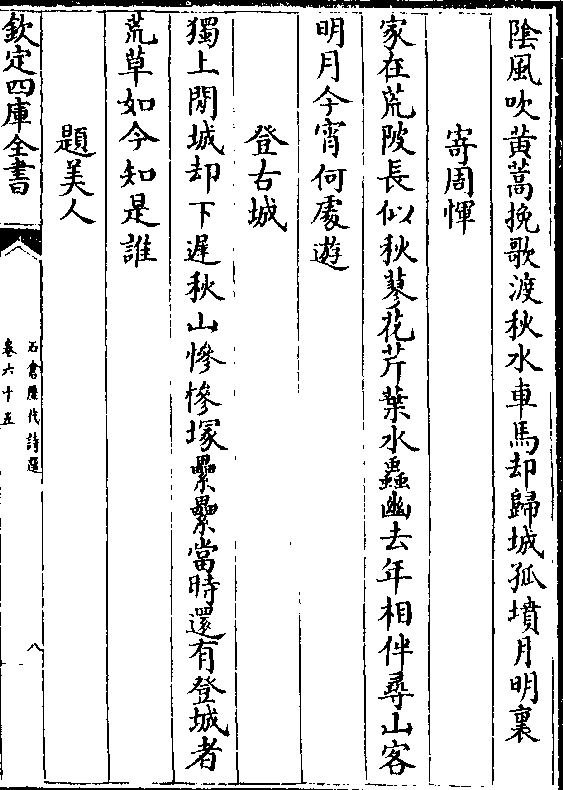 陰風吹黄蒿挽歌渡秋水車馬却歸城孤墳月明裏
寄周惲
家在荒陂長似秋蓼花芹葉水蟲幽去年相伴尋山客
明月今宵何處遊
登古城
獨上閒城却下遲秋山慘慘塚纍纍當時還有登城者
荒草如今知是誰
題美人
欽定四庫全書
石倉歷代詩選
卷六十五
八